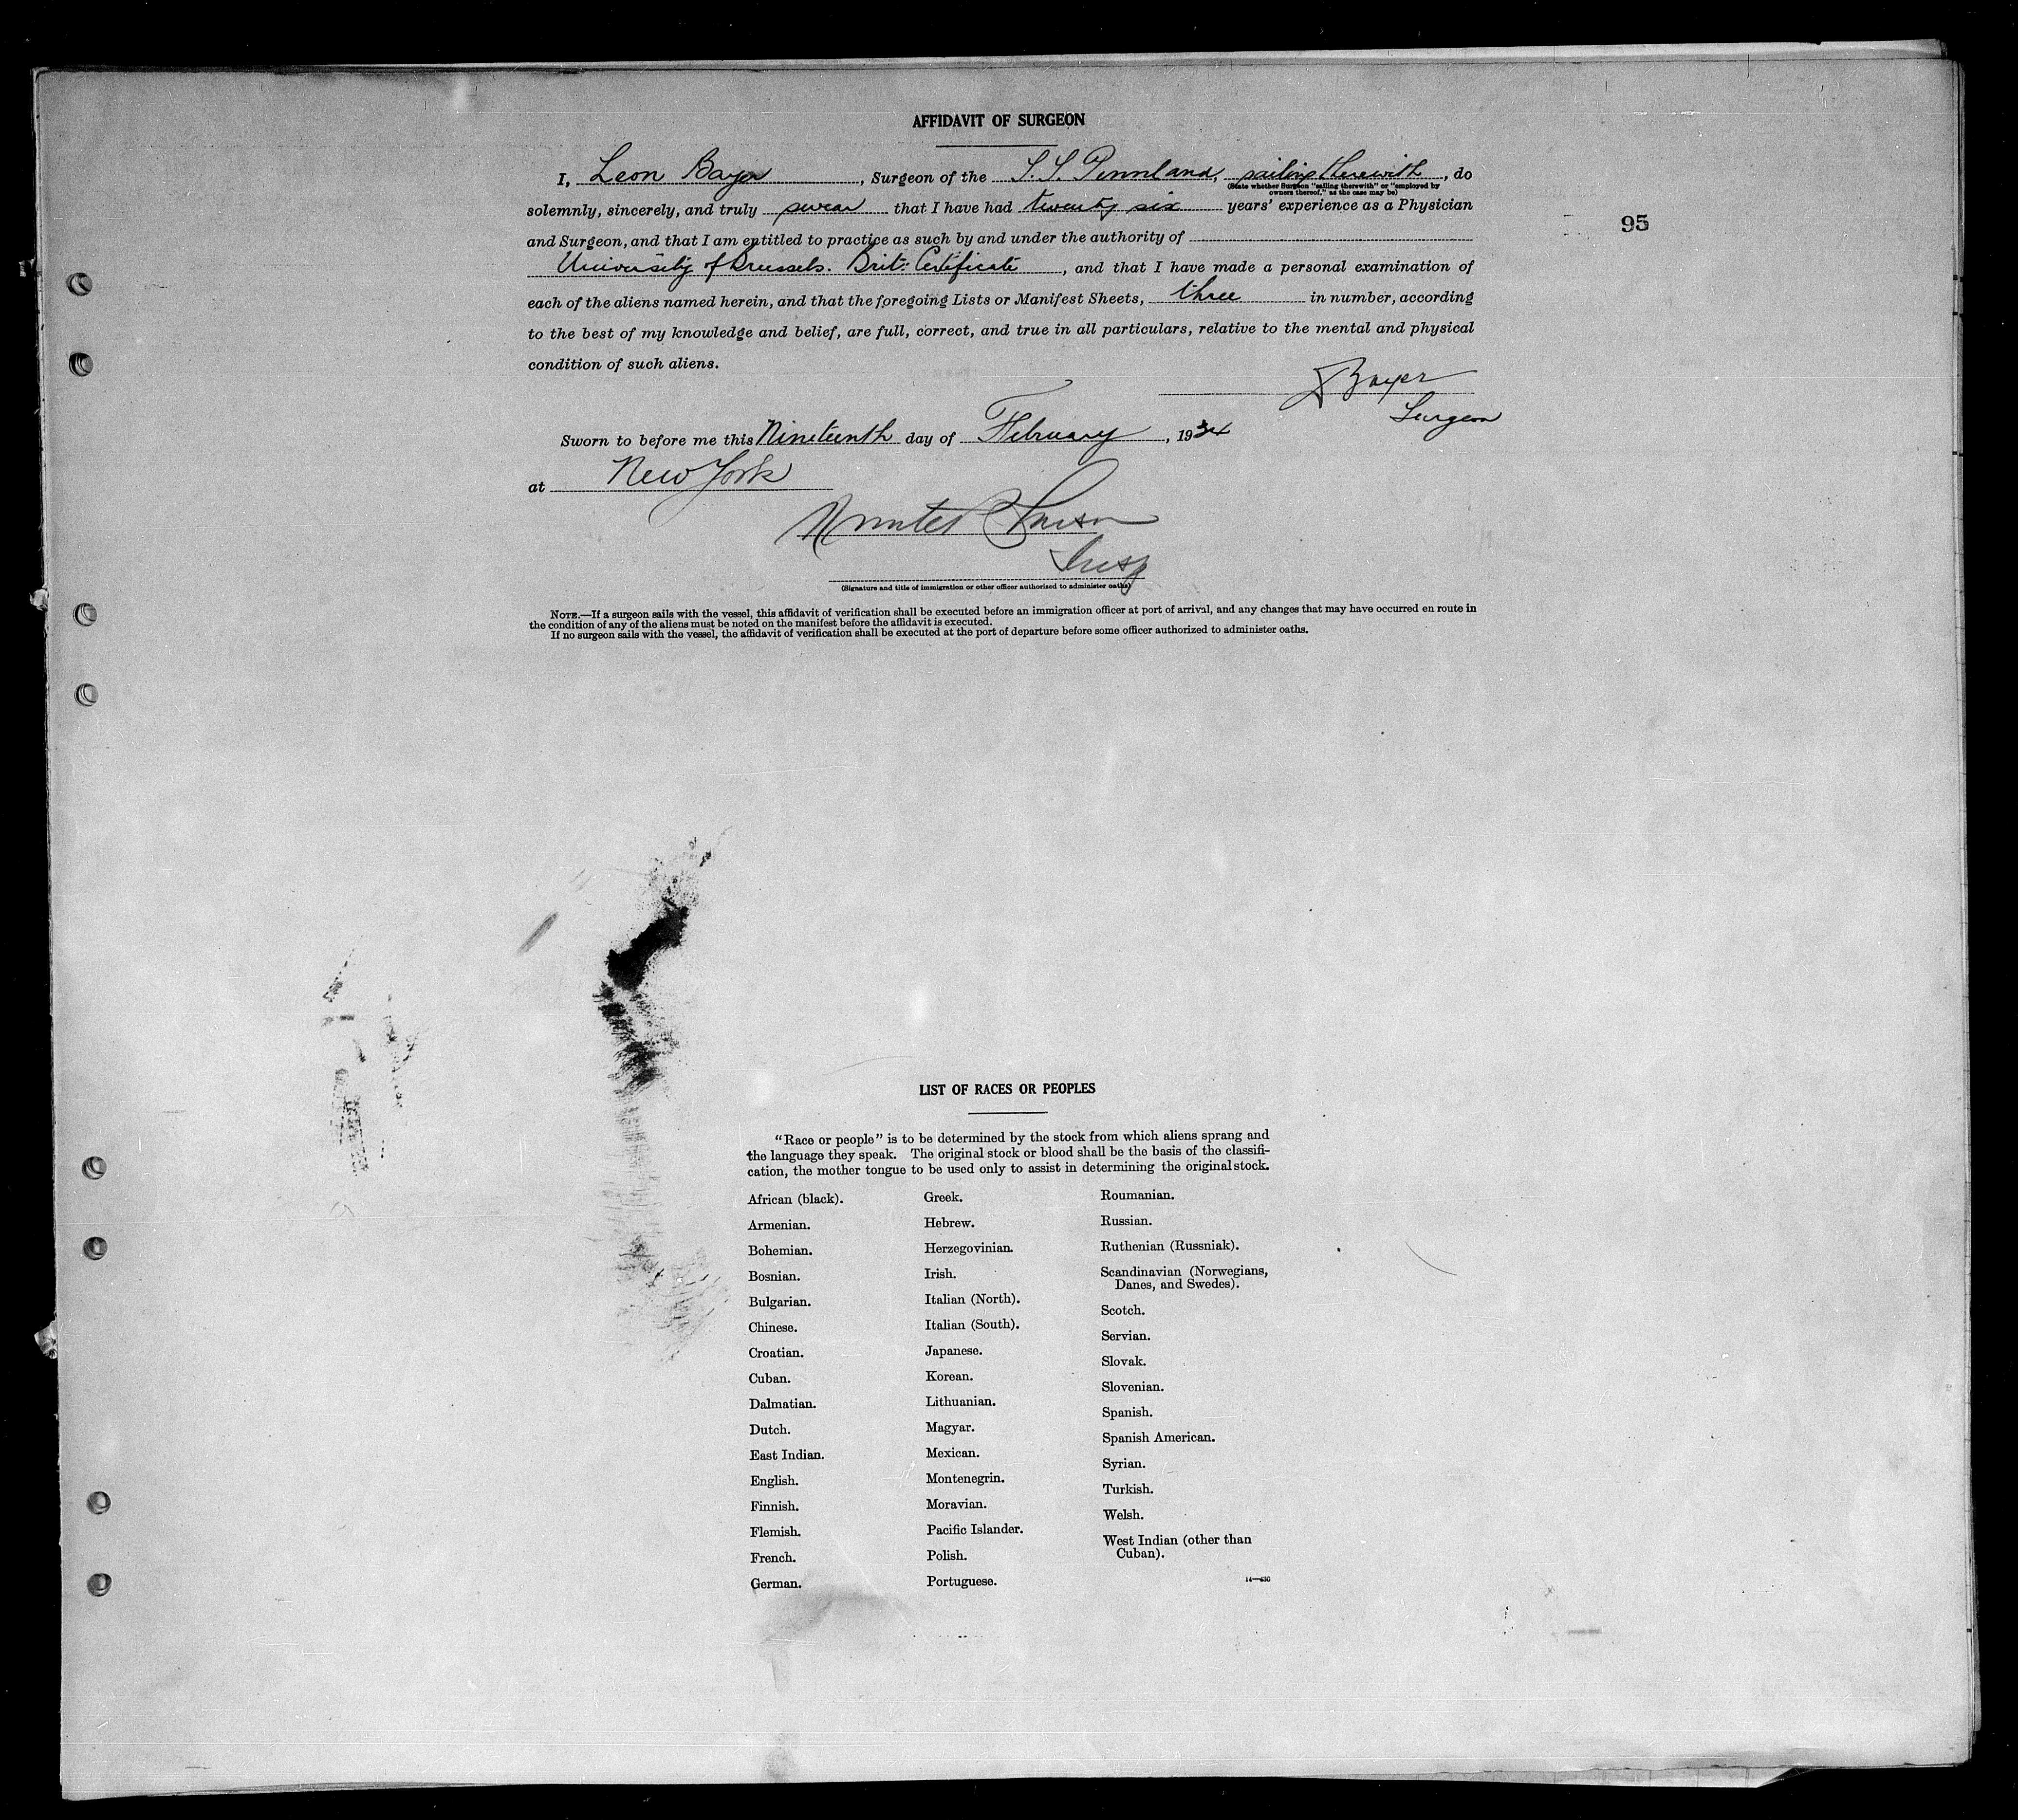 AFFIDAVIT OF SURGEON
I, Leon Bayer, Surgeon of the S.S. Pennland, sailing therewith, do
(State whether Surgeon "sailing therewith" or "employed by
owners thereof," as the case may be)
solemnly, sincerely, and truly swear that I have had twenty six years' experience as a Physician
95
and Surgeon, and that I am entitled to practice as such by and under the authority of
University of Brussels. Brit: Certificate, and that I have made a personal examination of
each of the aliens named herein, and that the foregoing Lists or Manifest Sheets, three in number, according
to the best of my knowledge and belief, are full, correct, and true in all particulars, relative to the mental and physical
condition of such aliens.
LBayer
Surgeon
Sworn to before me this Nineteenth day of February, 1934
at New York
Insp
(Signature and title of immigration or other officer authorized to administer oaths)
NOTE.—If a surgeon sails with the vessel, this affidavit of verification shall be executed before an immigration officer at port of arrival, and any changes that may have occurred en route in
the condition of any of the aliens must be noted on the manifest before the affidavit is executed.
If no surgeon sails with the vessel, the affidavit of verification shall be executed at the port of departure before some officer authorized to administer oaths.
LIST OF RACES OR PEOPLES
"Race or people" is to be determined by the stock from which aliens sprang and
the language they speak. The original stock or blood shall be the basis of the classifi-
cation, the mother tongue to be used only to assist in determining the original stock.
African (black).
Armenian.
Bohemian.
Bosnian.
Bulgarian.
Chinese.
Croatian.
Cuban.
Dalmatian.
Dutch.
East Indian.
English.
Finnish.
Flemish.
French.
German.
Greek.
Hebrew.
Herzegovinian.
Irish.
Italian (North).
Italian (South).
Japanese.
Korean.
Lithuanian.
Magyar.
Mexican.
Montenegrin.
Moravian.
Pacific Islander.
Polish.
Portuguese.
Roumanian.
Russian.
Ruthenian (Russniak).
Scandinavian (Norwegians,
Danes, and Swedes).
Scotch.
Servian.
Slovak.
Slovenian.
Spanish.
Spanish American.
Syrian.
Turkish.
Welsh.
West Indian (other than
Cuban).
14—430